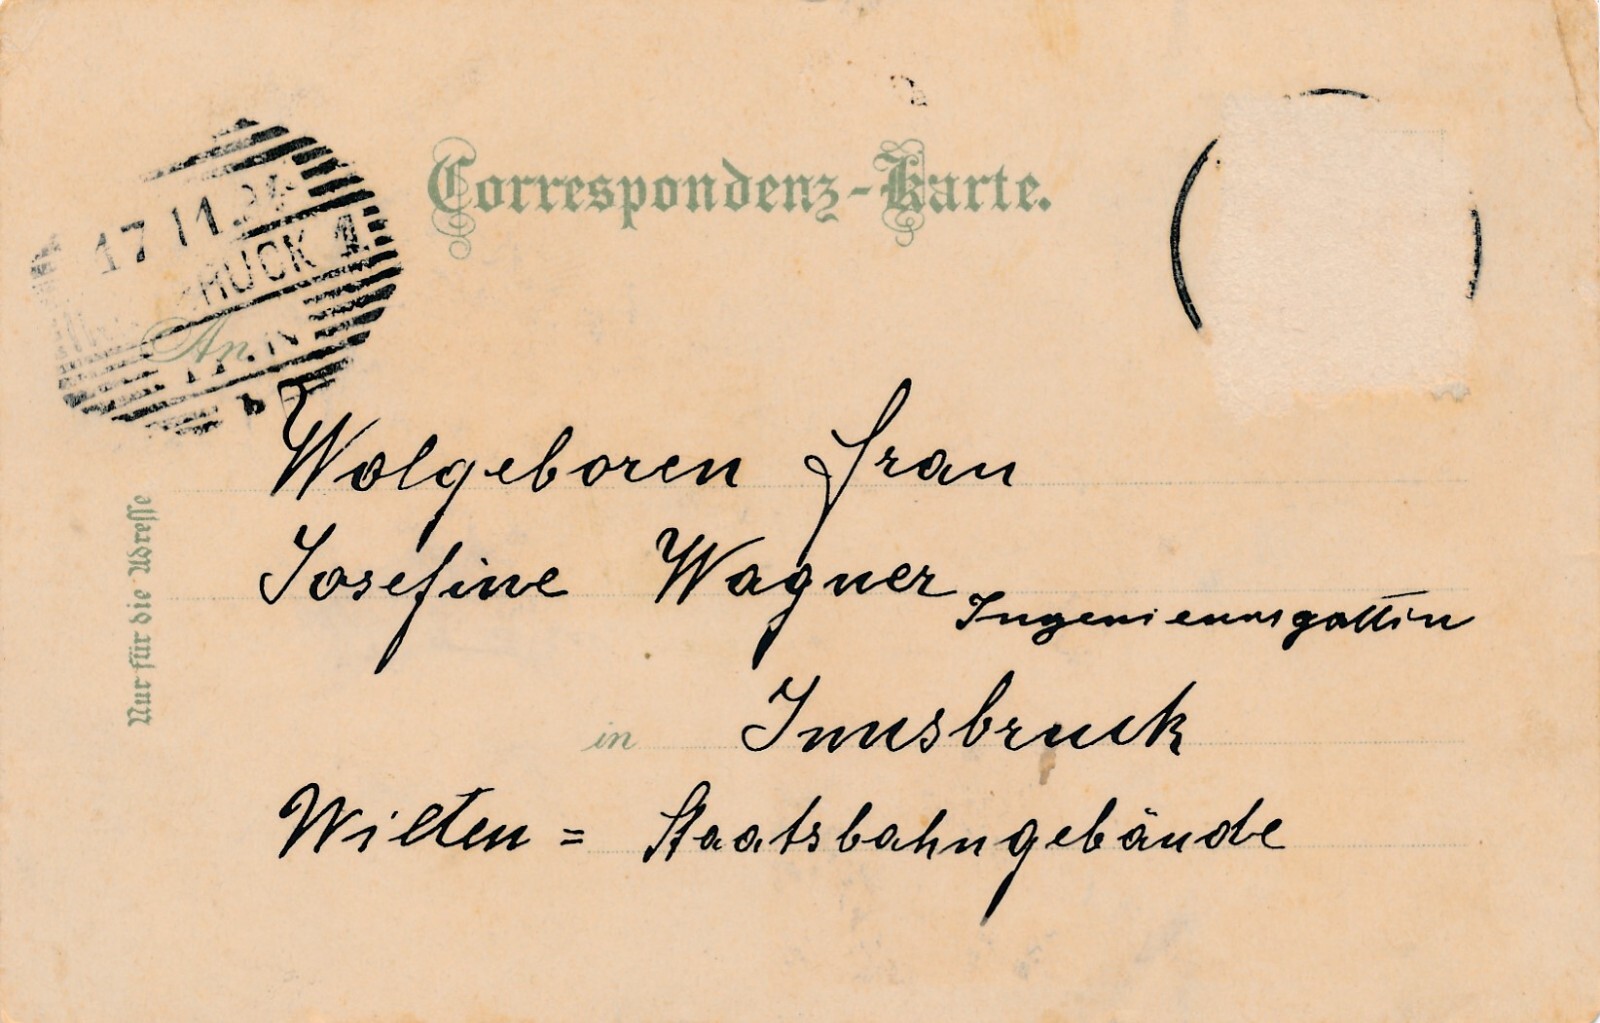 Correspondenz-Karte.
17 11
BRUCK 1.
An
Wolgeboren Frau
Josefine Wagner Ingenieursgattin
in Innsbruck
Wilten = Staatsbahngebäude
Nur für die Adresse